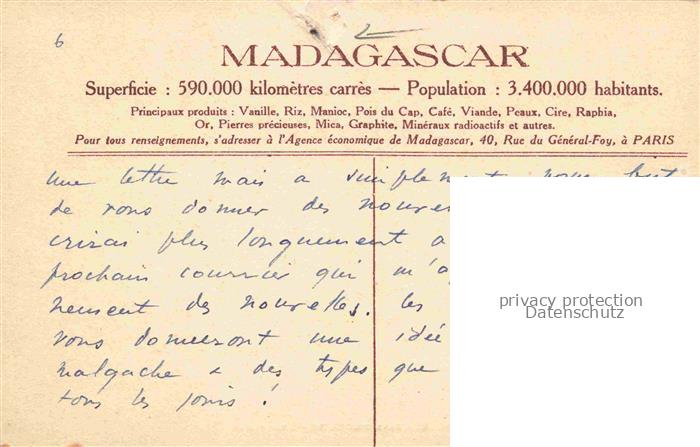 6
MADAGASCAR
Superficie : 590.000 kilomètres carrès — Population : 3.400.000 habitants.
Principaux produits : Vanille, Riz, Manioc, Pois du Cap, Café, Viande, Peaux, Cire, Raphia,
Or, Pierres précieuses, Mica, Graphite, Minéraux radioactifs et autres.
Pour tous renseignements, s'adresser à l'Agence économique de Madagascar, 40, Rue du Général-Foy, à PARIS
une lettre mais a simplement pour but
de vous donner des nouve
crirai plus longuement a
prochain courrier qui m'a
nement des nouvelles. les
vous donneront une idée
malgache & des types que
tous les jours !
privacy protection
Datenschutz